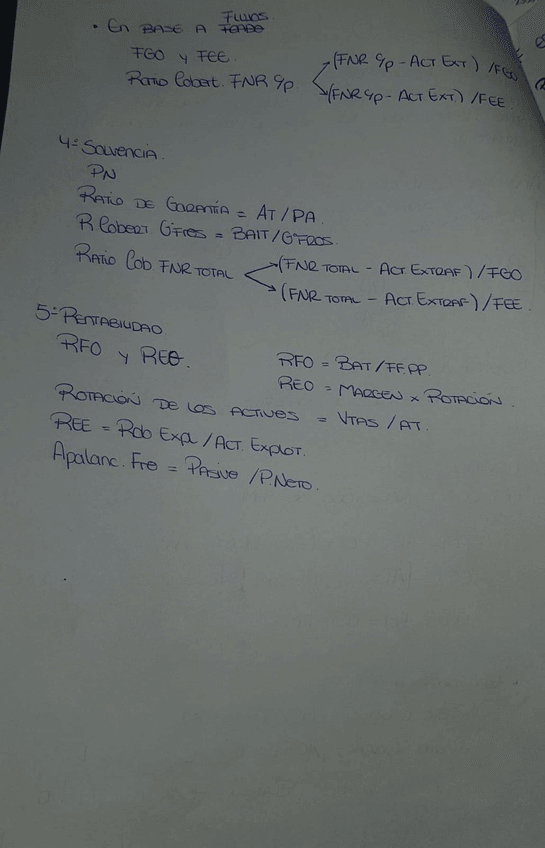 • En BASE A FONDO FLUJOS
FGO y FEE.
Ratio Cobert. FNR c/p (FNR c/p - ACT EXT) /FGO
(FNR c/p - ACT EXT) /FEE
4- SOLVENCIA.
PN
RATIO DE GARANTÍA = AT/PA.
R Cobert GºFros = BAIT/GºFROS.
RATIO Cob FNR TOTAL (FNR TOTAL - ACT EXTRAF) /FGO
(FNR TOTAL - ACT EXTRAF) /FEE.
5- RENTABILIDAD
RFO y REO.
RFO = BAT/FF.PP.
REO = MARGEN x ROTACIÓN.
ROTACIÓN DE LOS ACTIVOS = VTAS/AT.
REE = Rdo Expl/ACT. EXPLOT.
Apalanc. Fro = PASIVO /P.NETO.